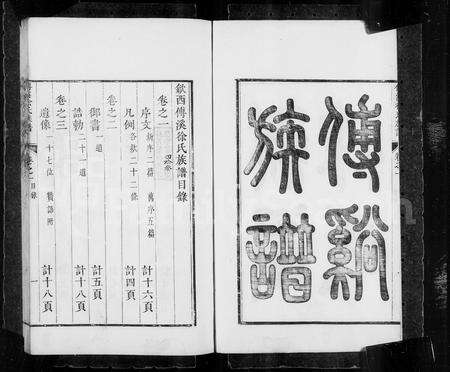 傅溪
族譜
歙西傅溪徐氏族譜目錄
卷之一
序文 新序二篇 舊序五篇 計十六頁
凡例 各款二十二條 計四頁
卷之二
御書 一道 計五頁
誥勅 二十一道 計十八頁
卷之三
遺像 十七位 計十八頁
目錄
一